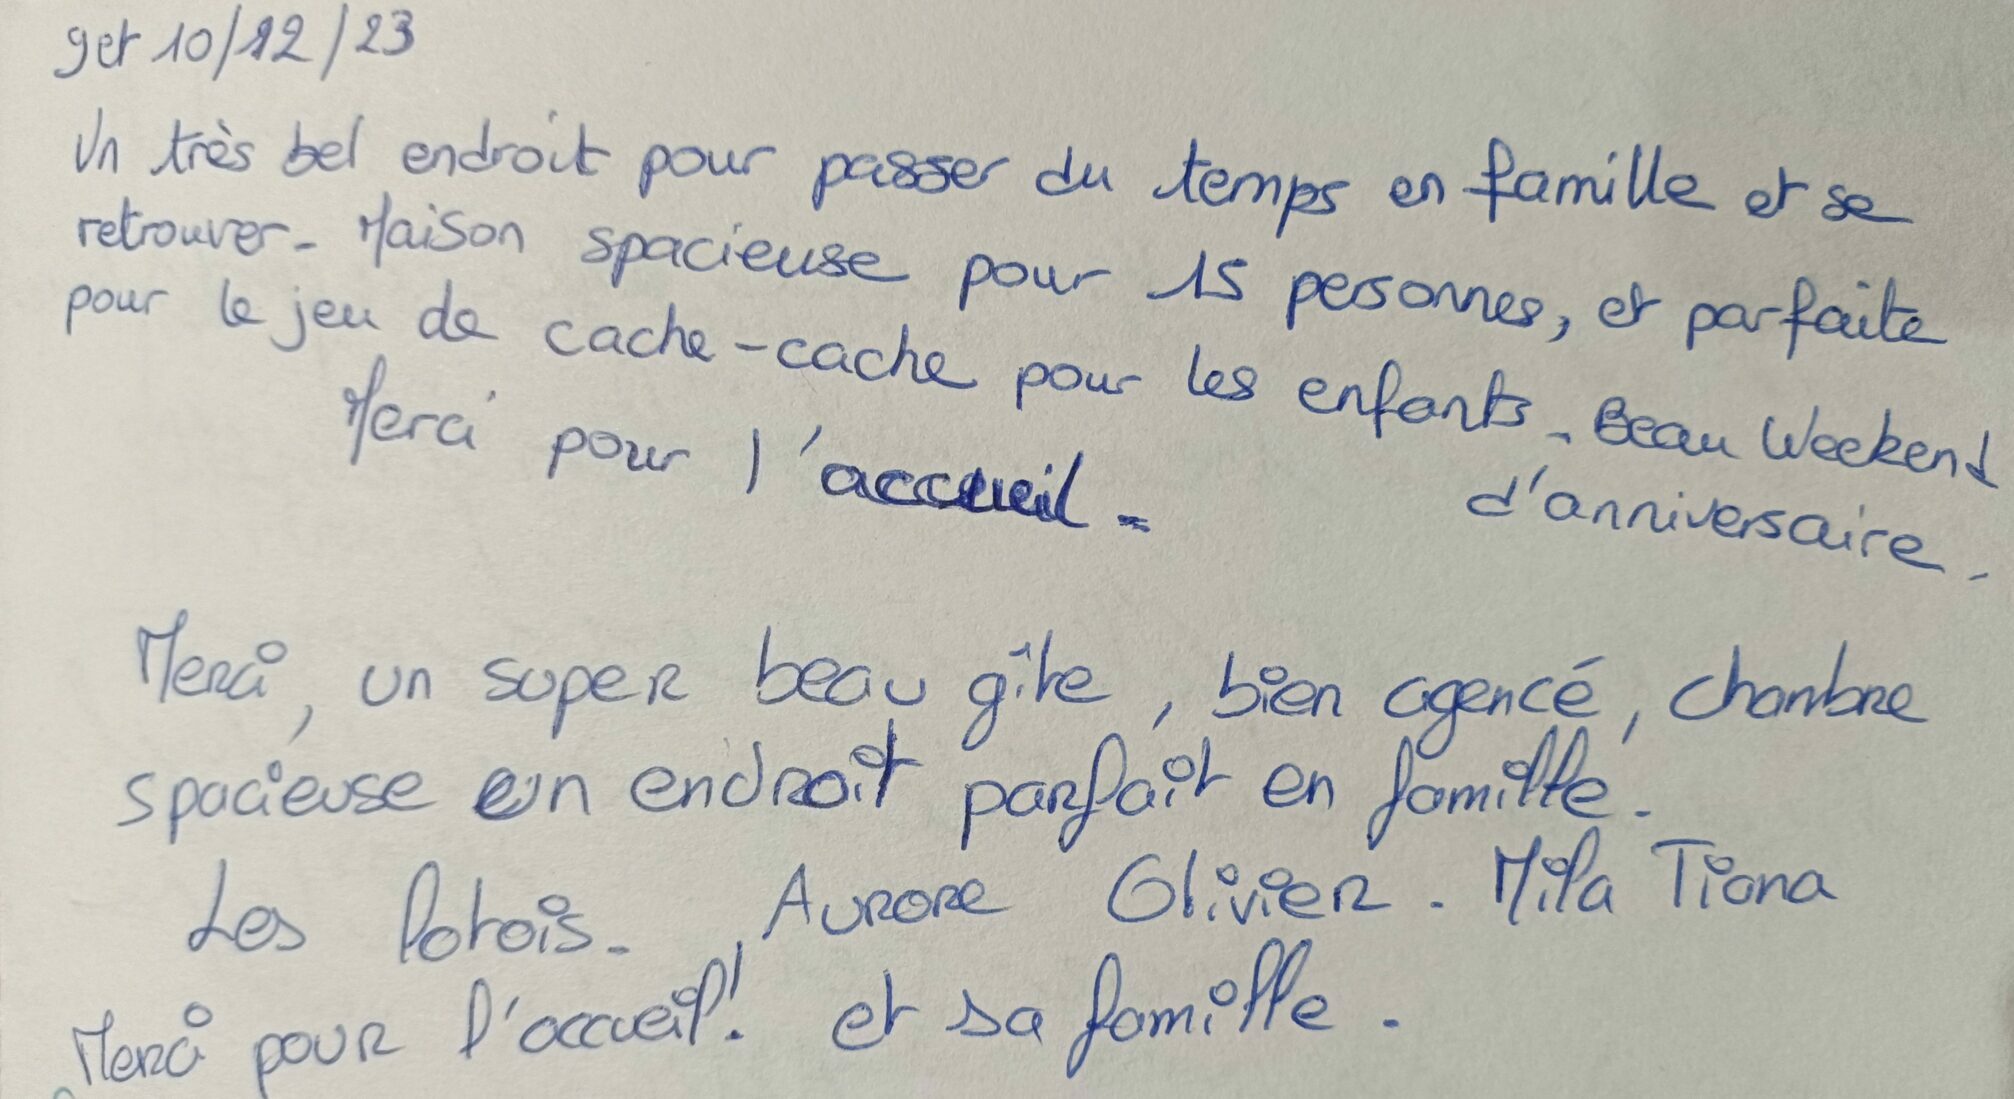 9 et 10/12/23
Un très bel endroit pour passer du temps en famille et se
retrouver. Maison spacieuse pour 15 personnes, et parfaite
pour le jeu de cache-cache pour les enfants. Beau Weekend
d'anniversaire.
Merci pour l'accueil.
Merci, un super beau gîte, bien agencé, chambre
spacieuse un endroit parfait en famille.
Les Potois. Aurore Olivier. Mila Tiana
et sa famille.
Merci pour l'accueil!